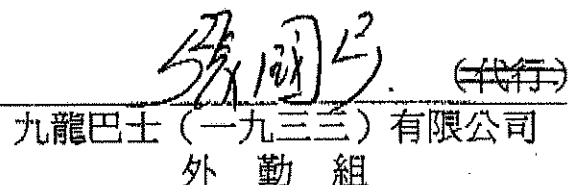 (代行)
九龍巴士(一九三三)有限公司
外勤組